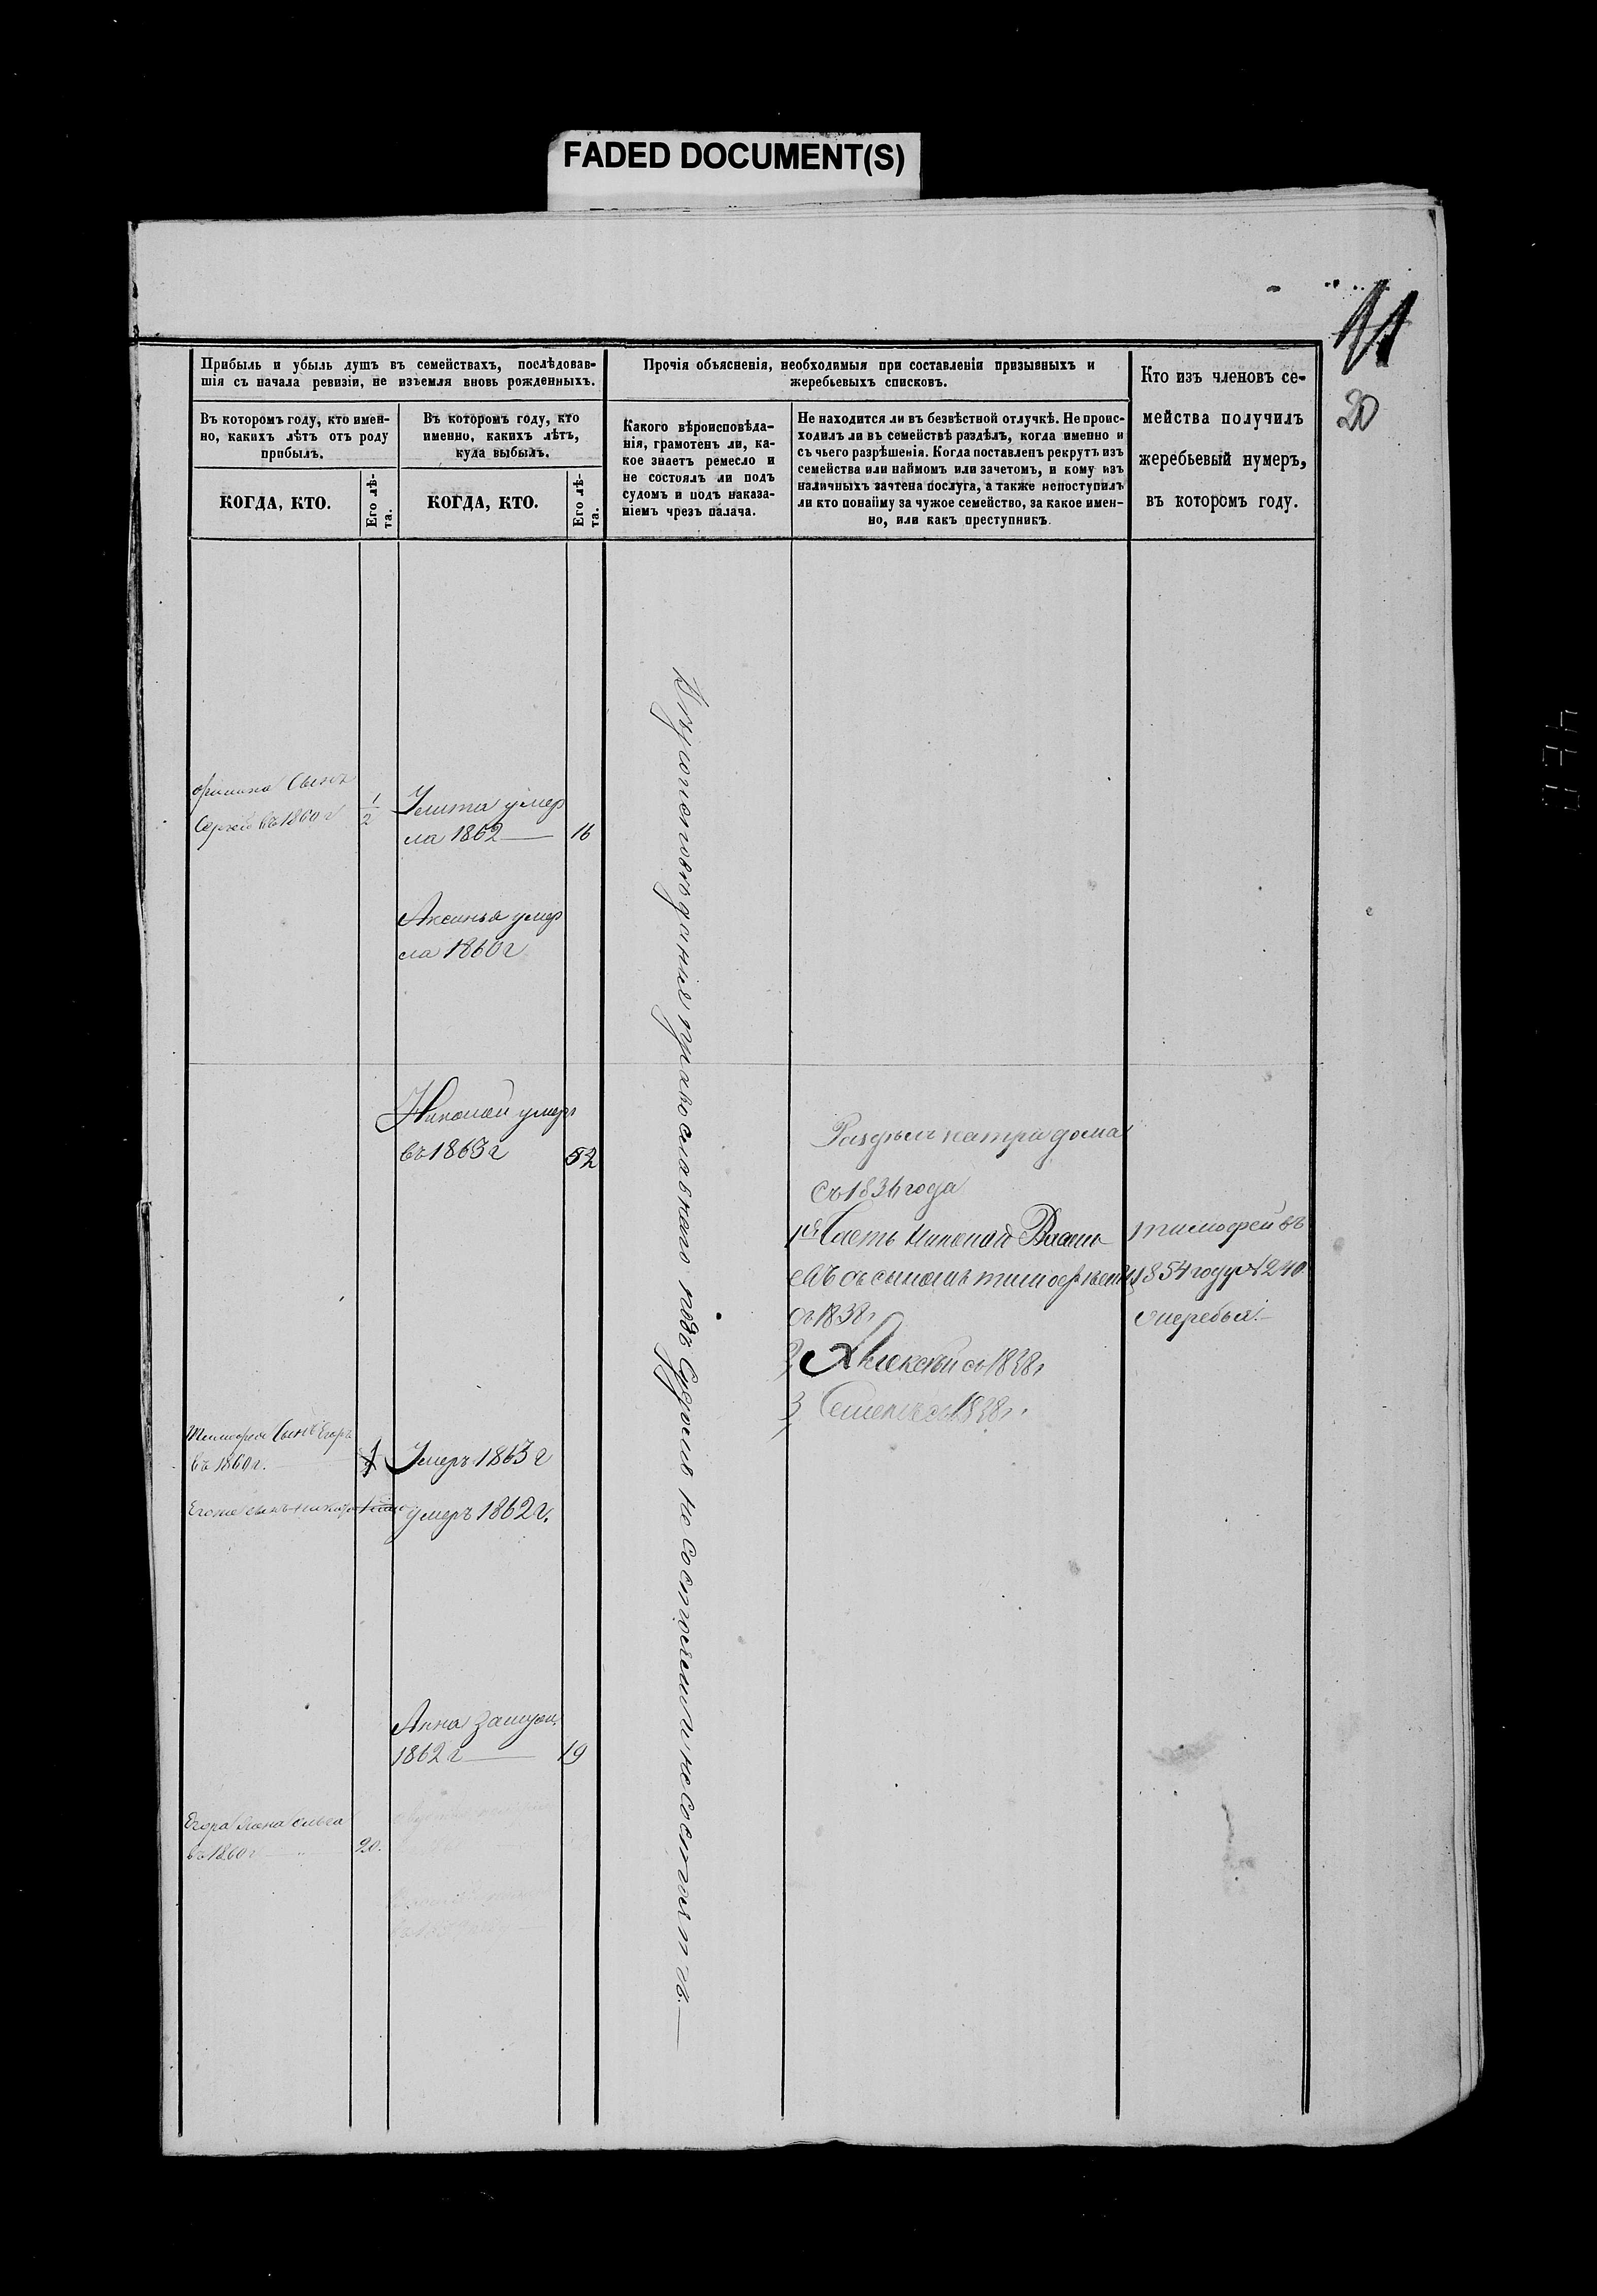 FADED DOCUMENT(S)
11
20
Прибыль и убыль душъ въ семействахъ, послѣдовав-
шія съ начала ревизіи, не изъемля вновь рожденныхъ.
Въ которомъ году, кто имен-
но, какихъ лѣтъ отъ роду
прибылъ.
КОГДА, КТО.
Его лѣ-
та.
Въ которомъ году, кто
именно, какихъ лѣтъ,
куда выбылъ.
КОГДА, КТО.
Его лѣ-
та.
Прочія объясненія, необходимыя при составленіи призывныхъ и
жеребьевыхъ списковъ.
Какого вѣроисповѣда-
нія, грамотенъ ли, ка-
кое знаетъ ремесло и
не состоялъ ли подъ
судомъ и подъ наказа-
ніемъ чрезъ палача.
Не находится ли въ безвѣстной отлучкѣ. Не проис-
ходилъ ли въ семействѣ раздѣлъ, когда именно и
съ чьего разрѣшенія. Когда поставленъ рекрутъ изъ
семейства или наймомъ или зачетомъ, и кому изъ
наличныхъ зачтена послуга, а также непоступилъ
ли кто понайму за чужое семейство, за какое имен-
но, или какъ преступникъ.
Кто изъ членовъ се-
мейства получилъ
жеребьевый нумеръ,
въ которомъ году.
сынъ
Сергей въ 1860 г
1/2
Улита умер
ла 1862
16
Аксинья умер
ла 1860 г
Николай умеръ
въ 1863 г
52
Тимофея сынъ Егоръ
въ 1860 г.
Умеръ 1863 г
Егоже сынъ
умеръ 1862 г.
Анна замуж.
1862 г
19
Егора жена
въ 1860 г
20.
Вѣроисповеданія православнаго подъ Судомъ не состоялъ и несостоитъ.
Раздѣлъ на три дома
съ 1836 года
1я Часть Николай Васил
евъ съ сыномъ тимофѣемъ
съ 1838 г
2, Алексѣй съ 1838 г
3, Семенъ съ 1838 г.
тимофей въ
1854 году № 240
жеребья.